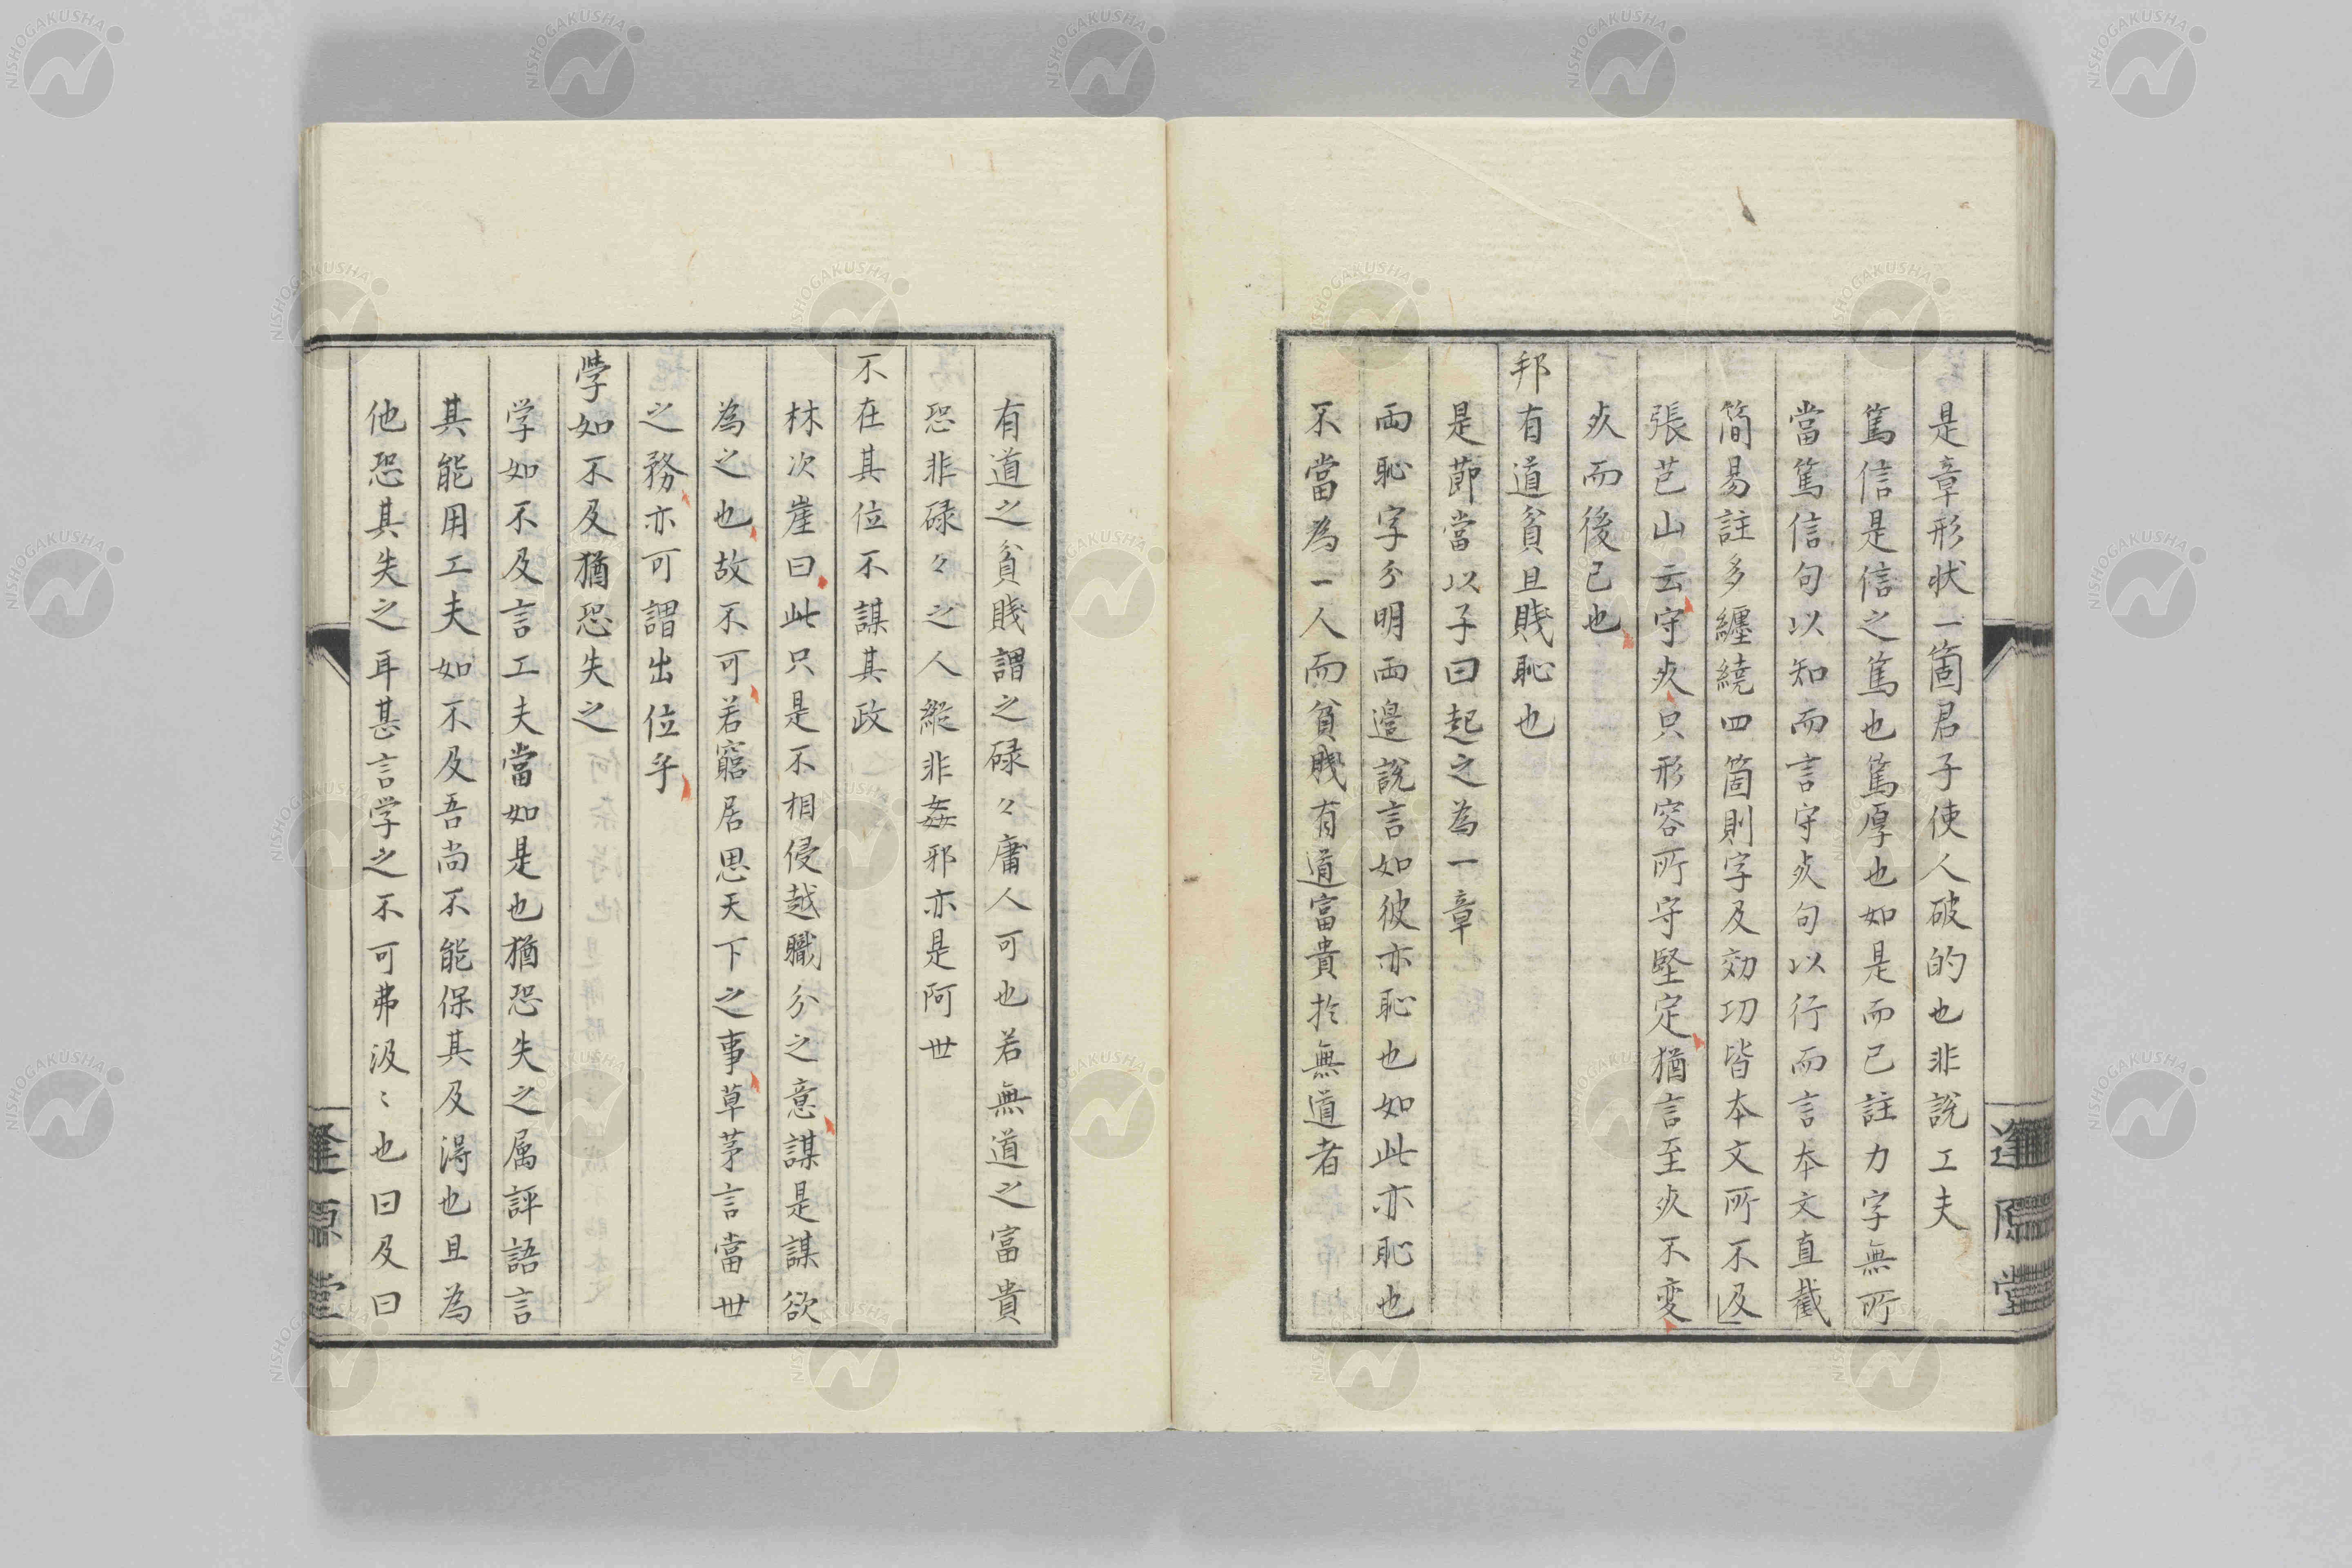 是章形状一箇君子使人破的也非說工夫
篤信是信之篤也篤厚也如是而已註力字無所
當篤信句以知而言守死句以行而言本文直截
簡易註多纏繞四箇則字及効功皆本文所不及
張芑山云守死只形容所守堅定猶言至死不変
死而後已也
邦有道貧且賤恥也
是節當以子曰起之為一章
両恥字分明両邉說言如彼亦恥也如此亦恥也
不當為一人而貧賤有道富貴於無道者
有道之貧賤謂之碌々庸人可也若無道之富貴
恐非碌々之人縱非姦邪亦是阿世
不在其位不謀其政
林次崖曰此只是不相侵越職分之意謀是謀欲
為之也故不可若窮居思天下之事草茅言當世
之務亦可謂出位乎
學如不及猶恐失之
学如不及言工夫當如是也猶恐失之属評語言
其能用工夫如不及吾尚不能保其及得也且為
他恐其失之耳甚言学之不可弗汲〻也曰及曰
逢原堂
逢源堂
NISHOGAKUSHA